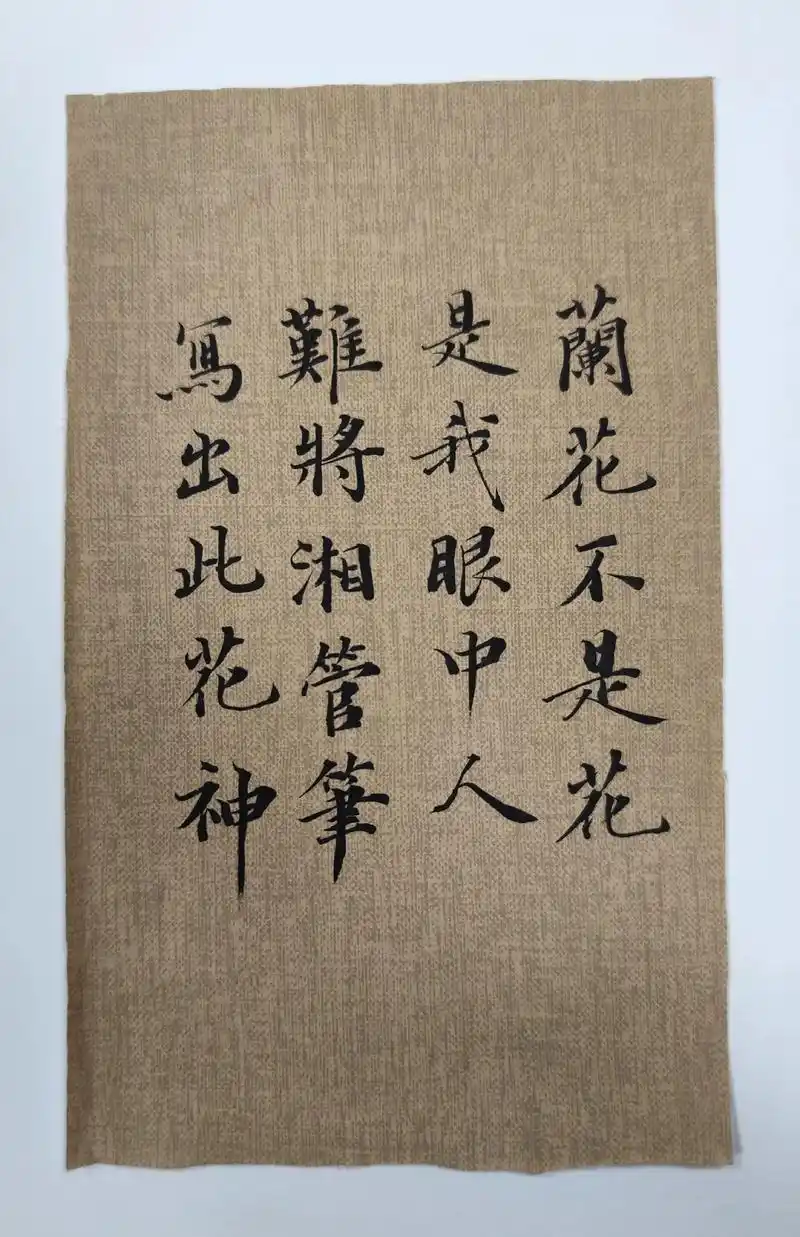 蘭花不是花
是我眼中人
難將湘管筆
寫出此花神